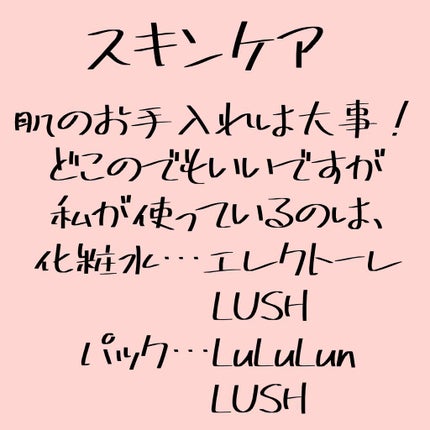 スキンケア
肌のお手入れは大事！
どこのでもいいですが
私が使っているのは、
化粧水…エレクトーレ
LUSH
パック…LuLuLun
LUSH